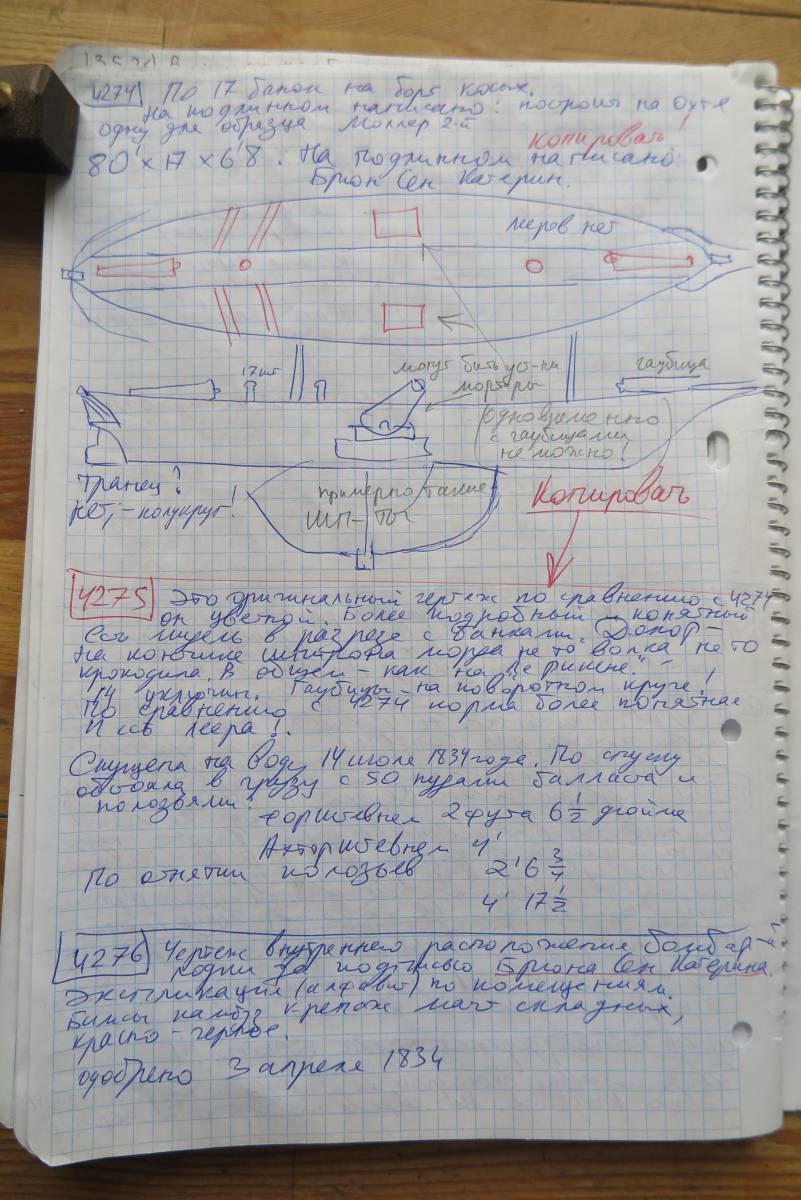 4274 По 17 банок на борт косых.
На подлинном написано: построить на Охте
одну для образца Моллер 2-й
Копировать!
80' x 17 x 6'8. На подлинном написано:
Брюн Сен Катерин.
леров нет
17 шт
могут быть уст-ны
мортиры
гаубица
(одновременно
с гаубицами
не можно!)
транец?
нет, - полукруг!
примерно такие
шп-ты
Копировать
4275 Это оригинальный чертеж по сравнению с 4274
он цветной. Более подробный и понятный
Есть мидель в разрезе с банками.
На кончике морда не то волка не то
крокодила. В общем - как на
14 уключин. Гаубицы - на поворотном круге!
По сравнению с 4274 корма более понятная
И есть леера!.
Спущена на воду 14 июля 1834 года. По спуску
в грузу с 50 пудами балласта и
полозьями:
форштевнем 2 фута 6 1/2 дюйма
Ахтерштевнем 4'
По отнятии полозьев 2' 6 3/4
4' 17 1/2
4276 Чертеж внутреннего расположения бомбард-й
лодки за подписью Брюна Сен Катерина.
Экспликация (алфавит) по помещениям.
Бимсы крепеж мачт складных,
красно-черное.
одобрено 3 апреля 1834